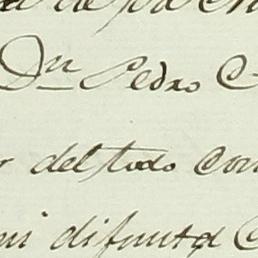 de pa
Dn Pedro C
r del todo Con
mi difunta C